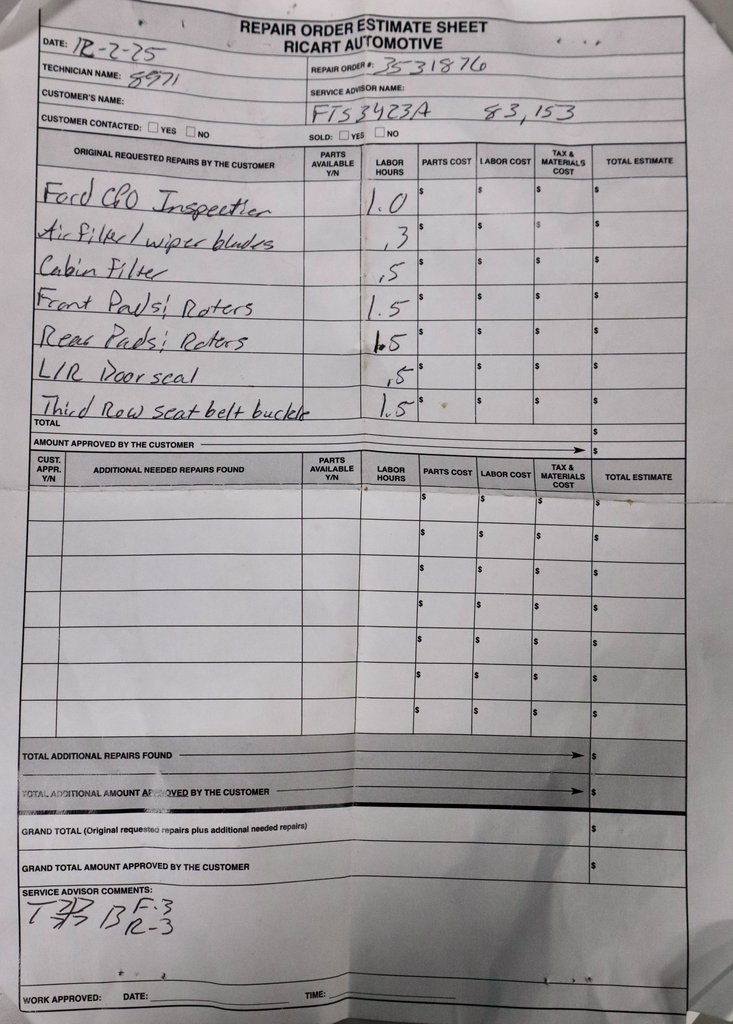 REPAIR ORDER ESTIMATE SHEET
RICART AUTOMOTIVE
DATE: 12-2-25
TECHNICIAN NAME: 8971
REPAIR ORDER #: 3531876
CUSTOMER'S NAME:
SERVICE ADVISOR NAME:
FTS3423A 83,153
CUSTOMER CONTACTED: ☐ YES ☐ NO
SOLD: ☐ YES ☐ NO
ORIGINAL REQUESTED REPAIRS BY THE CUSTOMER PARTS AVAILABLE Y/N LABOR HOURS PARTS COST LABOR COST TAX & MATERIALS COST TOTAL ESTIMATE
Ford CPO Inspection 1.0 $ $ $ $
Air filter/wiper blades ,3 $ $ $ $
Cabin Filter ,5 $ $ $ $
Front Pads; Roters 1.5 $ $ $ $
Rear Pads; Roters 1.5 $ $ $ $
L/R Door seal ,5 $ $ $ $
Third Row seat belt buckle 1.5 $ $ $ $
TOTAL $
AMOUNT APPROVED BY THE CUSTOMER $
CUST. APPR. Y/N ADDITIONAL NEEDED REPAIRS FOUND PARTS AVAILABLE Y/N LABOR HOURS PARTS COST LABOR COST TAX & MATERIALS COST TOTAL ESTIMATE
$ $ $ $
$ $ $ $
$ $ $ $
$ $ $ $
$ $ $ $
$ $ $ $
$ $ $ $
TOTAL ADDITIONAL REPAIRS FOUND $
TOTAL ADDITIONAL AMOUNT APPROVED BY THE CUSTOMER $
GRAND TOTAL (Original requested repairs plus additional needed repairs) $
GRAND TOTAL AMOUNT APPROVED BY THE CUSTOMER $
SERVICE ADVISOR COMMENTS:
T B F-3
R-3
WORK APPROVED: DATE: TIME: